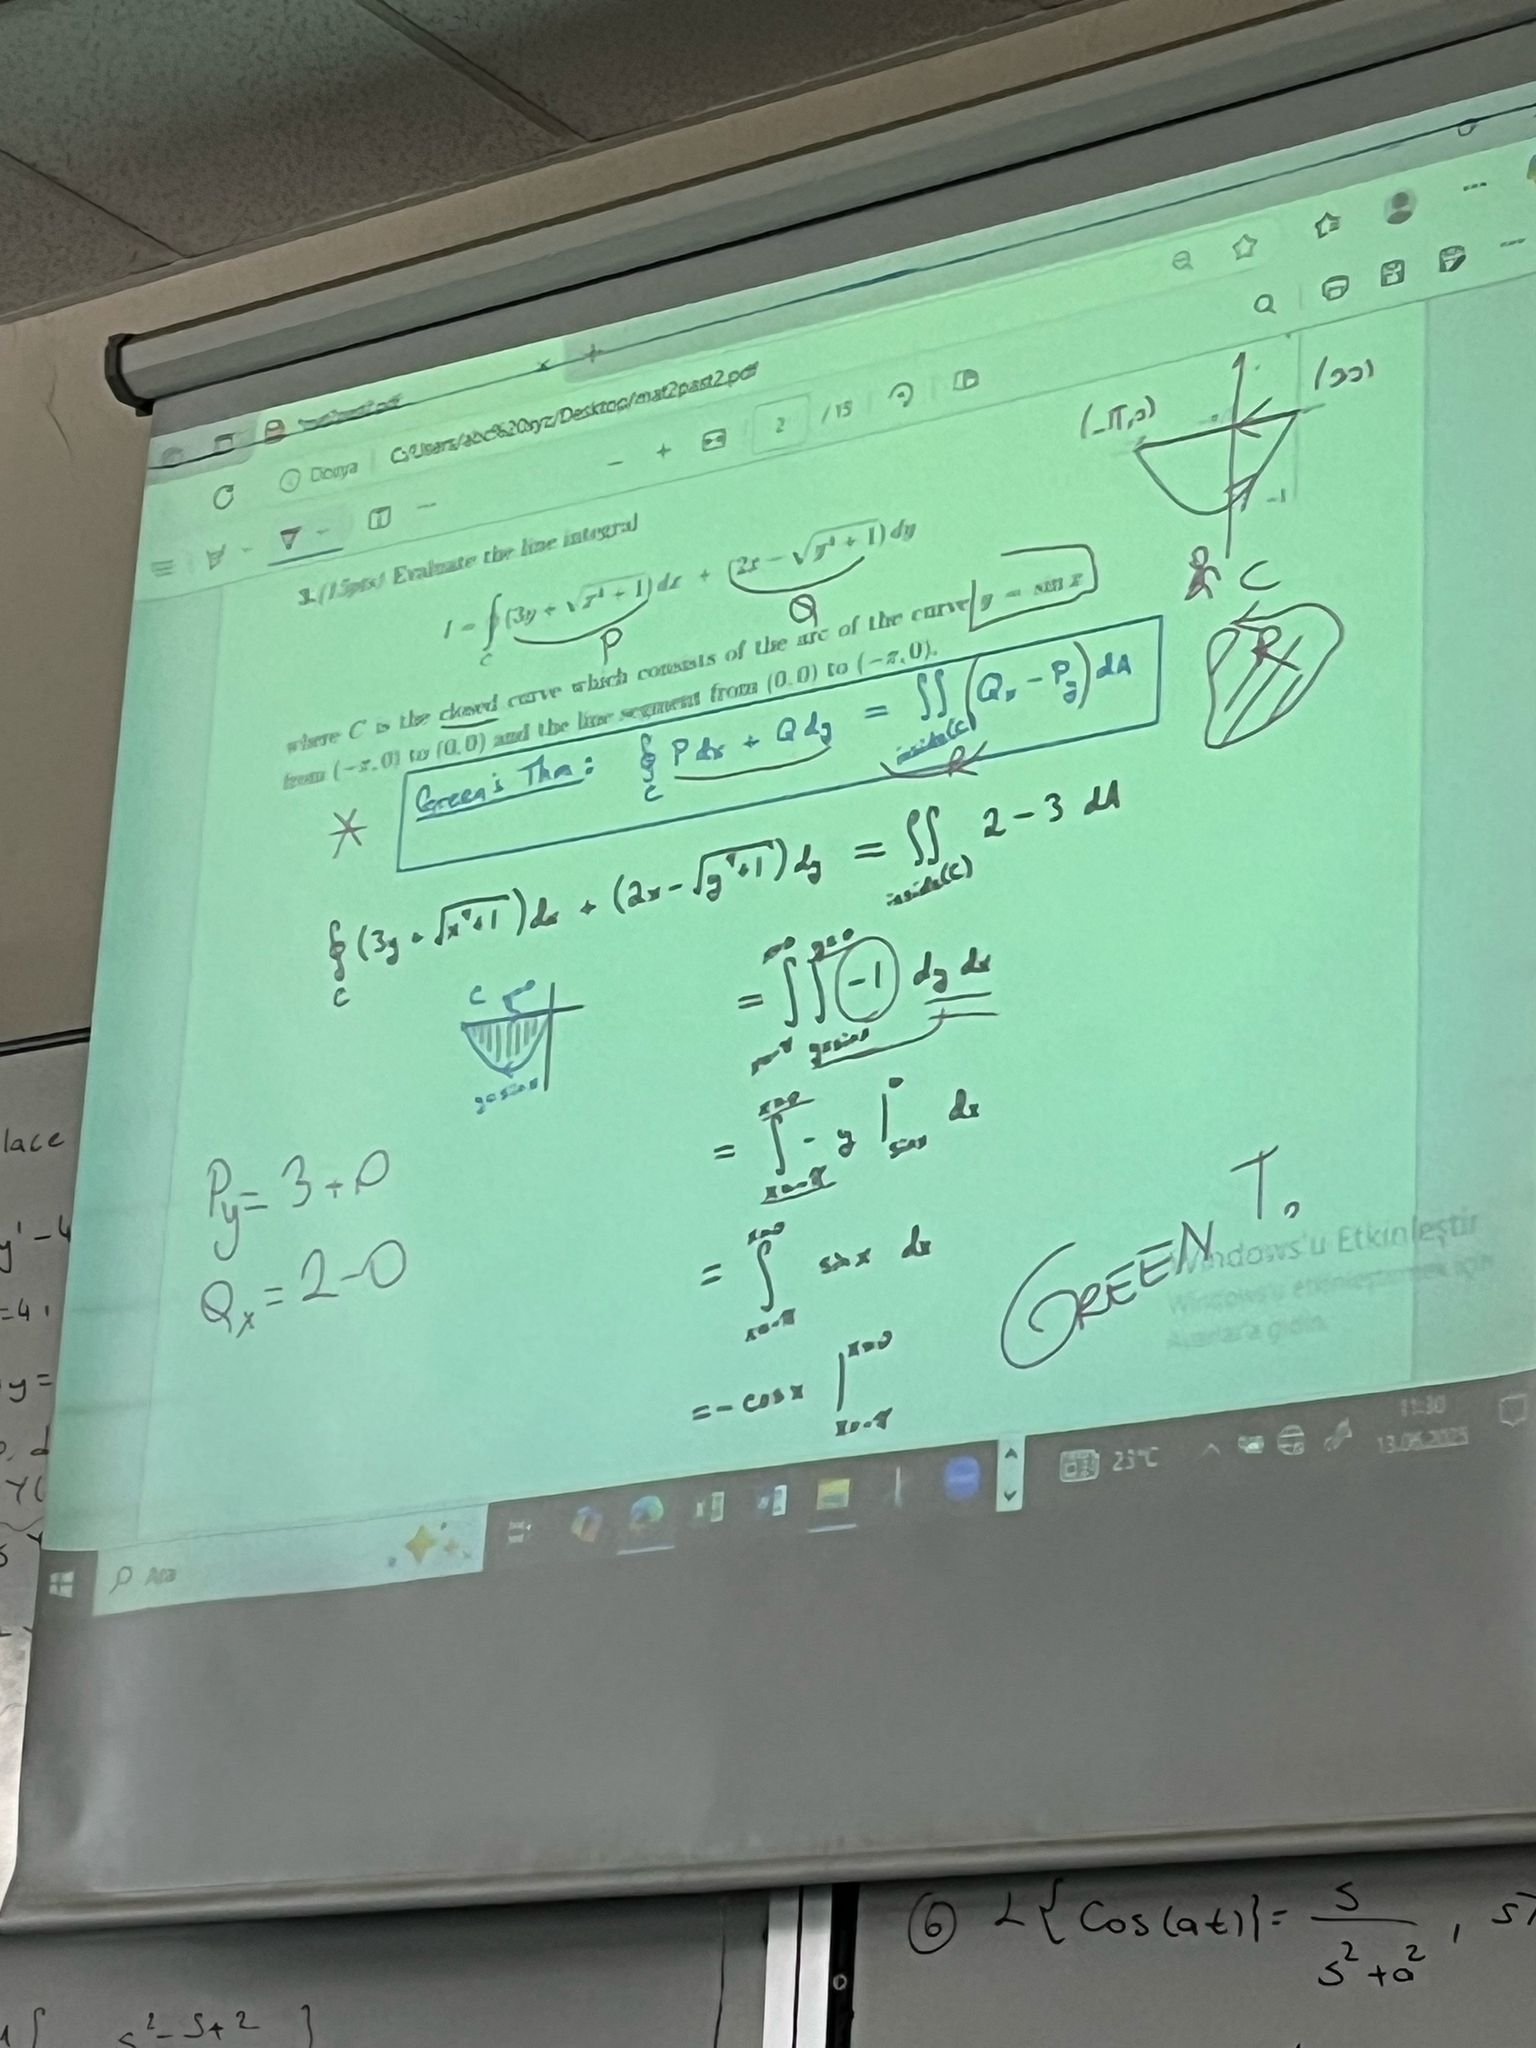 C:/Users/abc%20xyz/Desktop/mat2past2.pdf
2 / 15
3.(15pts) Evaluate the line integral
I = ∮ (3y + √(x⁴ + 1)) dx + (2x − √(y⁴ + 1)) dy
C
P Q
where C is the closed curve which consists of the arc of the curve y = sin x
from (−π, 0) to (0, 0) and the line segment from (0, 0) to (−π, 0).
(-π, 0)
-1
C
R
Green's Thm: ∮ P dx + Q dy = ∬ (Qx − Py) dA
C inside(C)
R
∮ (3y + √(x⁴+1)) dx + (2x − √(y⁴+1)) dy = ∬ 2 − 3 dA
C inside(C)
C y=0
y=sinx
x=0 y=0
= ∫ ∫ (-1) dy dx
x=-π y=sinx
x=0
= ∫ - y |⁰ sinx dx
x=-π
x=0
= ∫ sin x dx
x=-π
= - cos x | x=0
x=-π
Py = 3 + 0
Qx = 2 - 0
GREEN T.
Windows'u Etkinleştir
Windows'u etkinleştirmek için
Ayarlar'a gidin.
Ara
23°C
11:30
lace
y' - 4
y =
⑥ L{Cos(at)} = s / (s² + a²) , s>
s² - s + 2 }